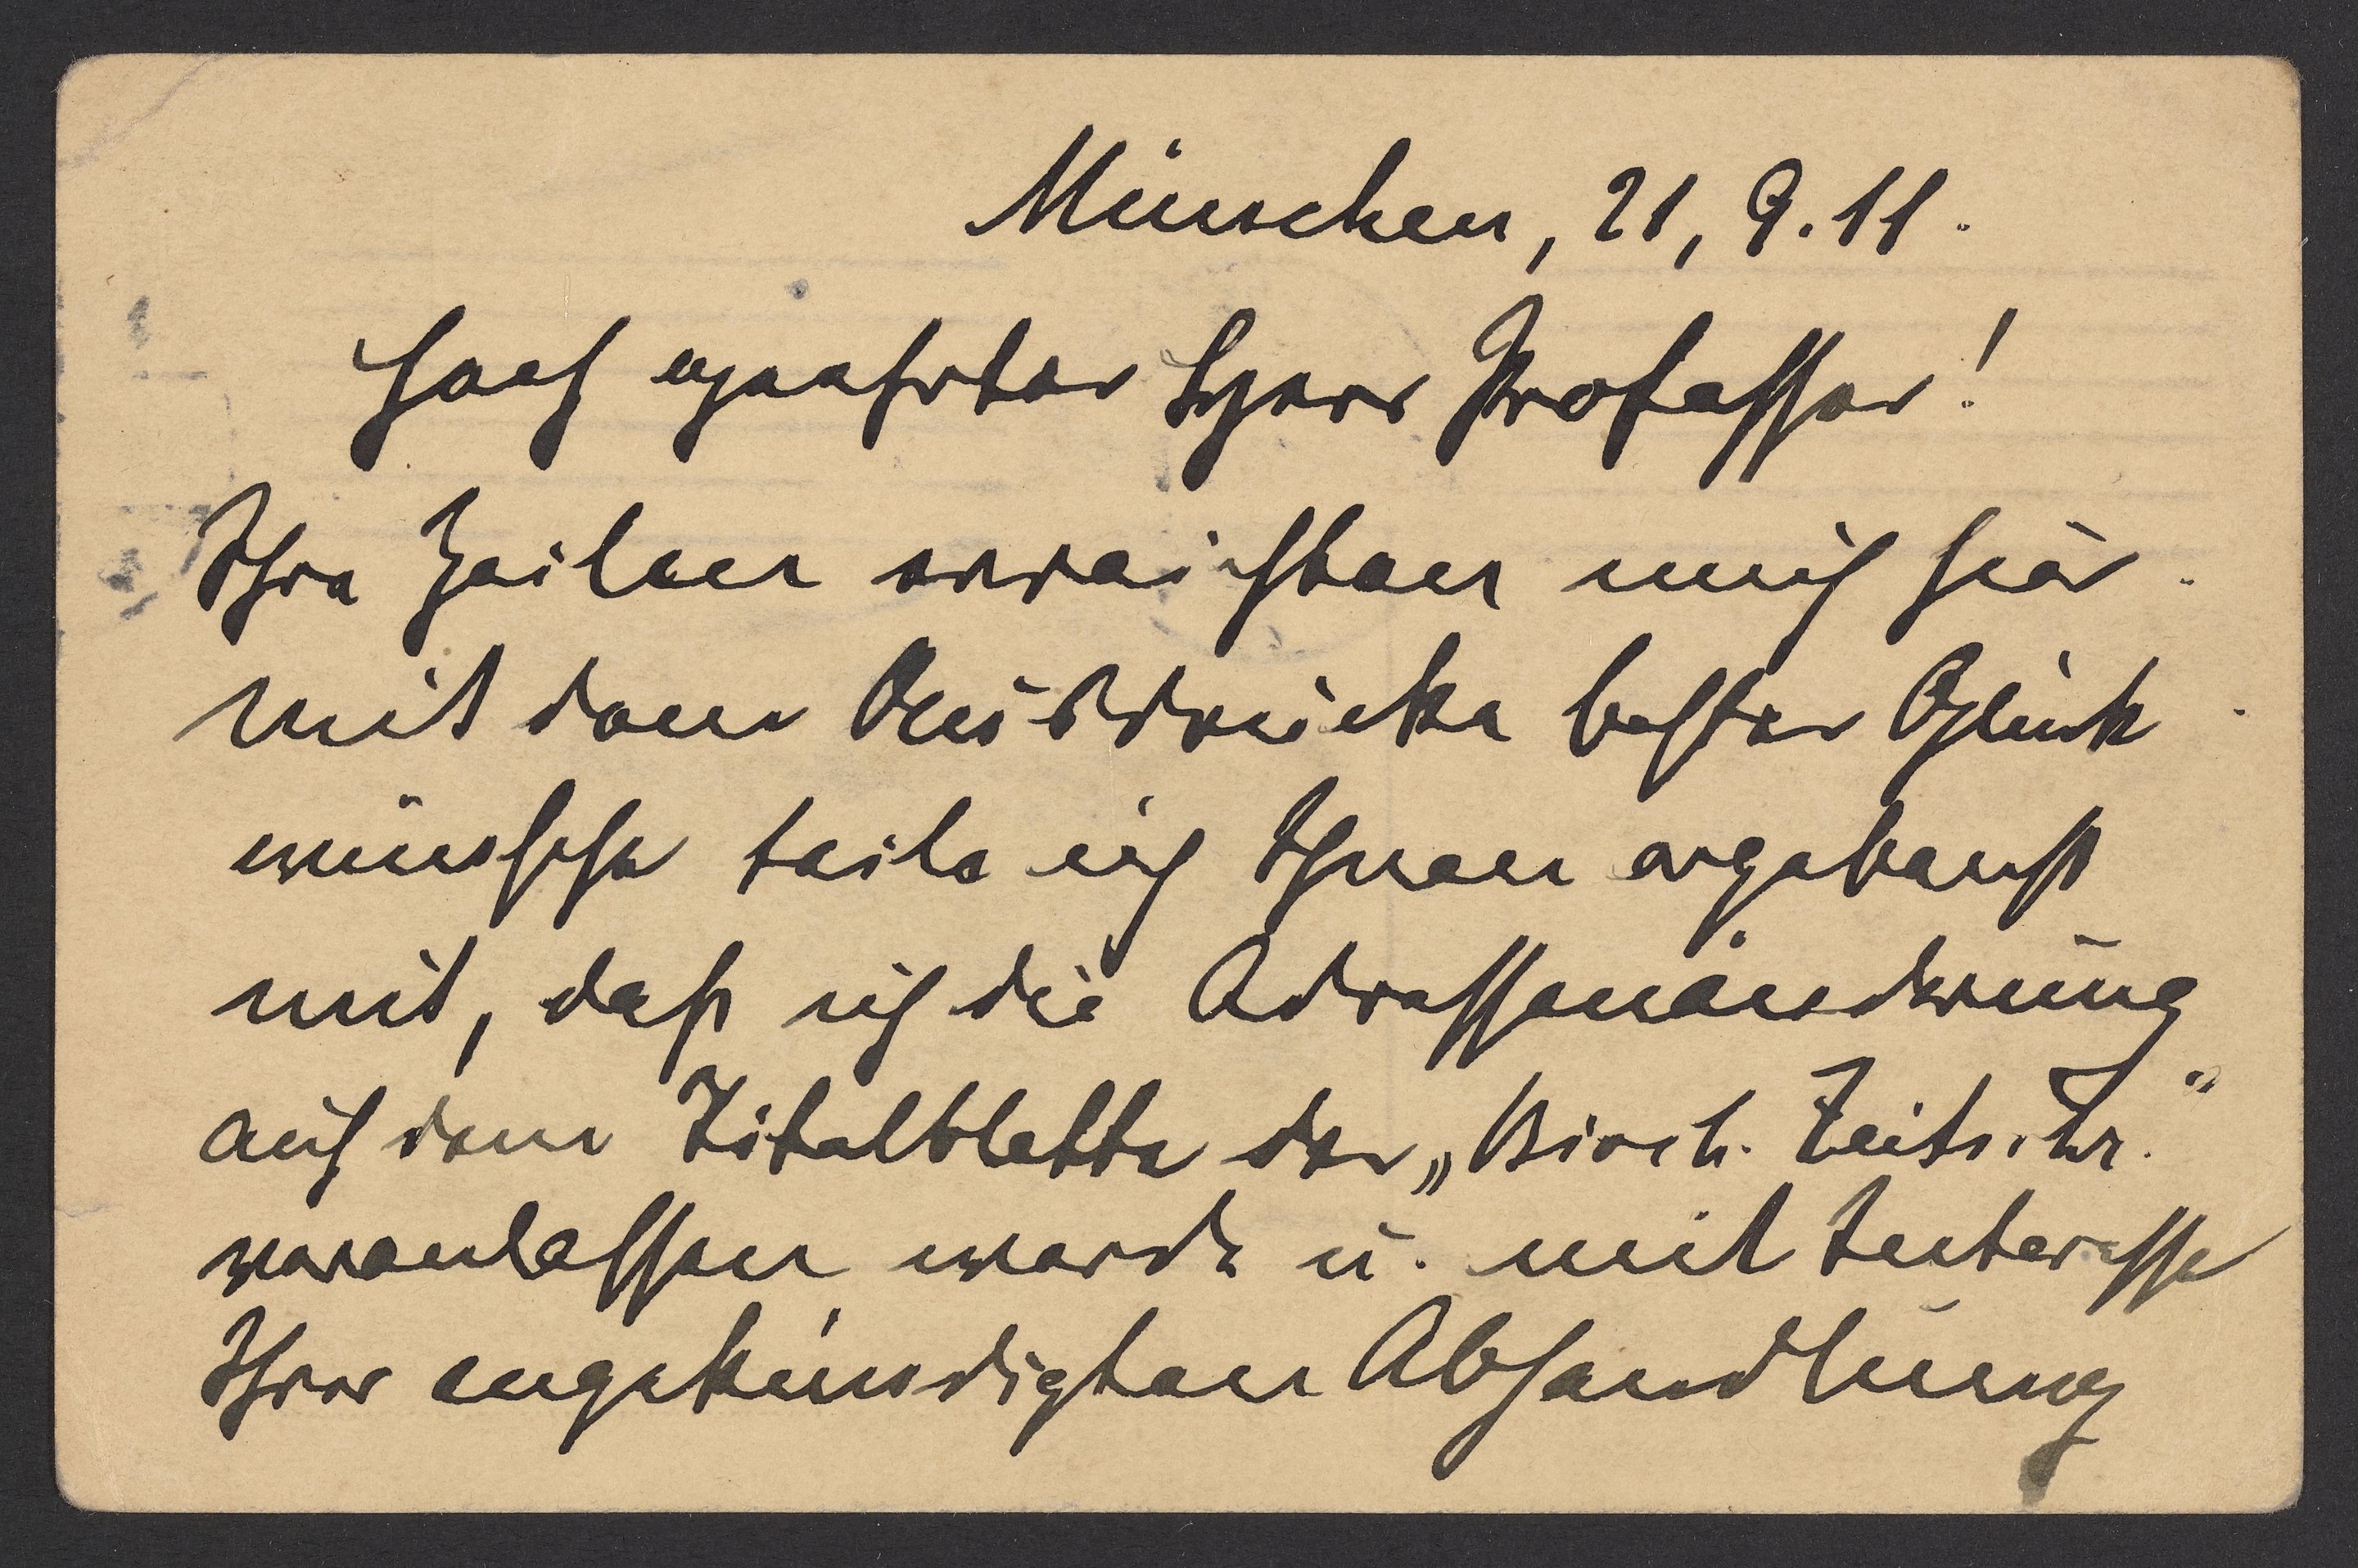 München, 21, 9. 11.
Hoch geehrter Herr Professor!
Ihre Zeilen erreichten mich hier.
Mit dem Ausdrucke bester Glück
wünsche teile ich Ihnen ergebenst
mit, daß ich die Adressenänderung
auf dem Titelblatte der „Bioch. Zeitschr.“
veranlassen werde u. mit Interesse
Ihrer angekündigten Abhandlung